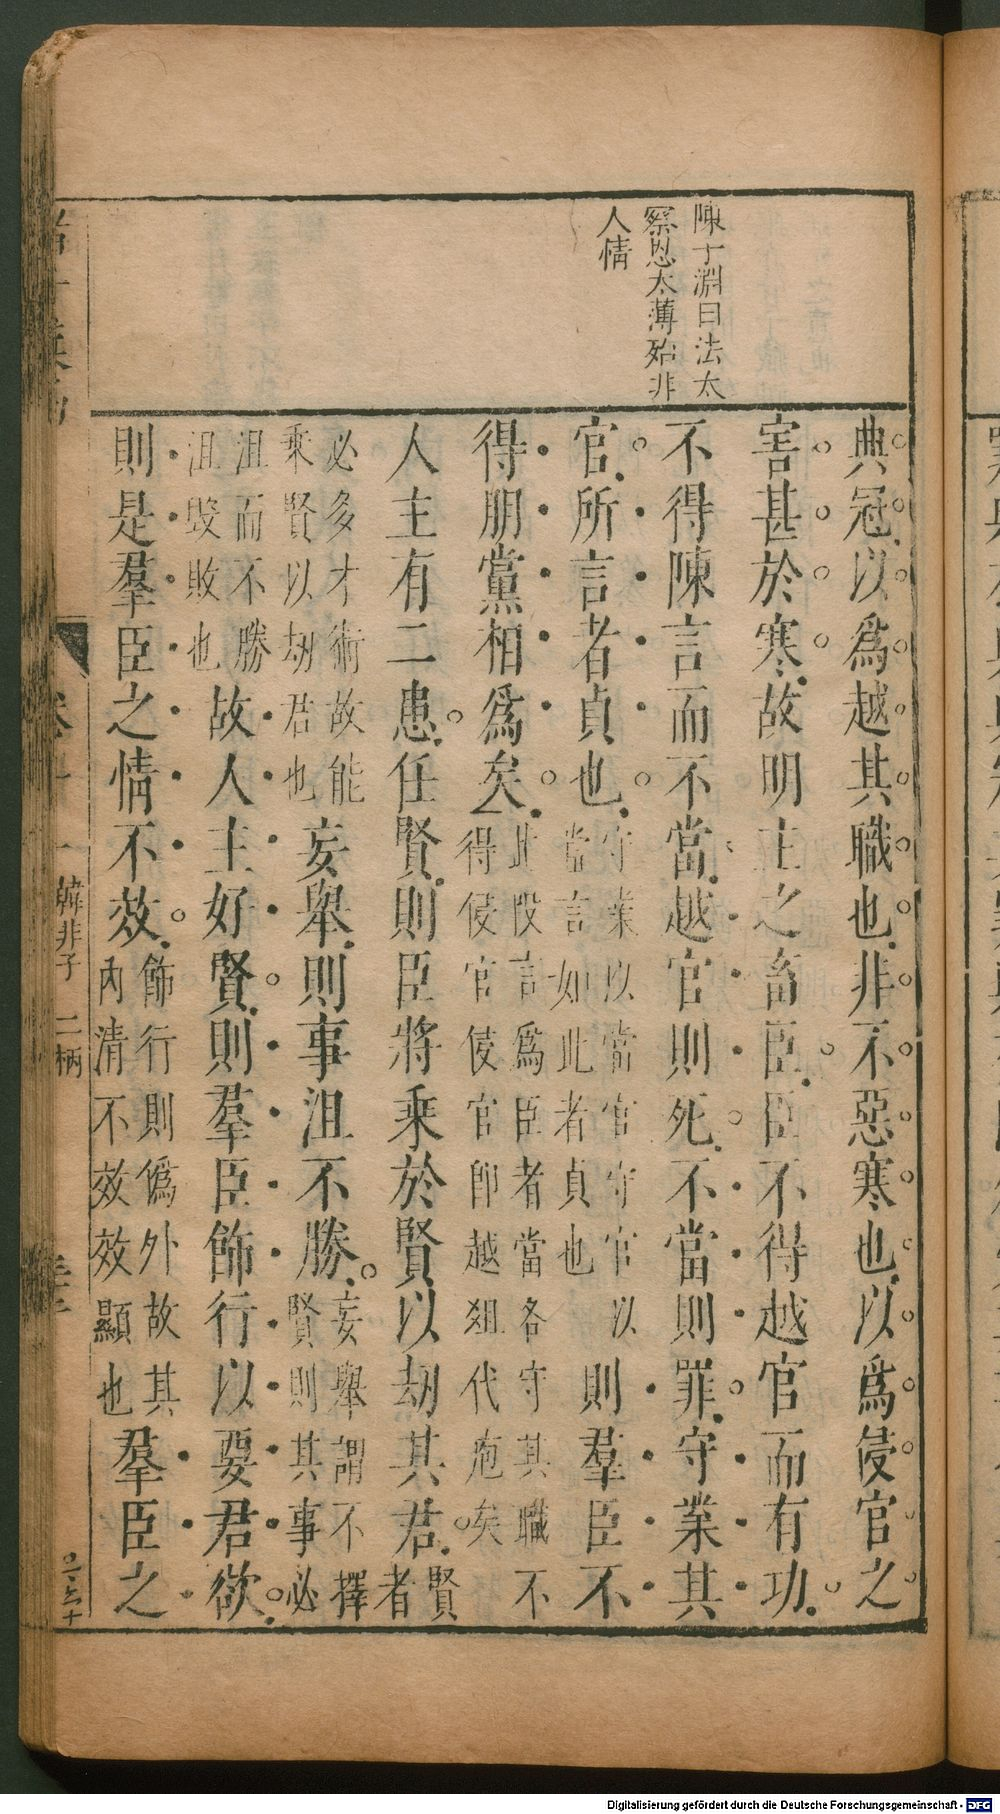 陳子淵曰法太
察恩太薄殆非
人情
典冠以爲越其職也非不惡寒也以爲侵官之
害甚於寒故明主之畜臣臣不得越官而有功
不得陳言而不當越官則死不當則罪守業其
官所言者貞也守業以當官守官以當言如此者貞也則羣臣不
得朋黨相爲矣此段言爲臣者當各守其職不得侵官侵官即越俎代庖矣
人主有二患任賢則臣將乘於賢以劫其君賢者
必多才術故能乘賢以劫君也妄舉則事沮不勝妄舉謂不擇賢則其事必
沮而不勝沮毀敗也故人主好賢則羣臣飾行以要君欲
則是羣臣之情不效飾行則僞外故其內清不效效顯也羣臣之
韓非子 二柄
Digitalisierung gefördert durch die Deutsche Forschungsgemeinschaft - DFG